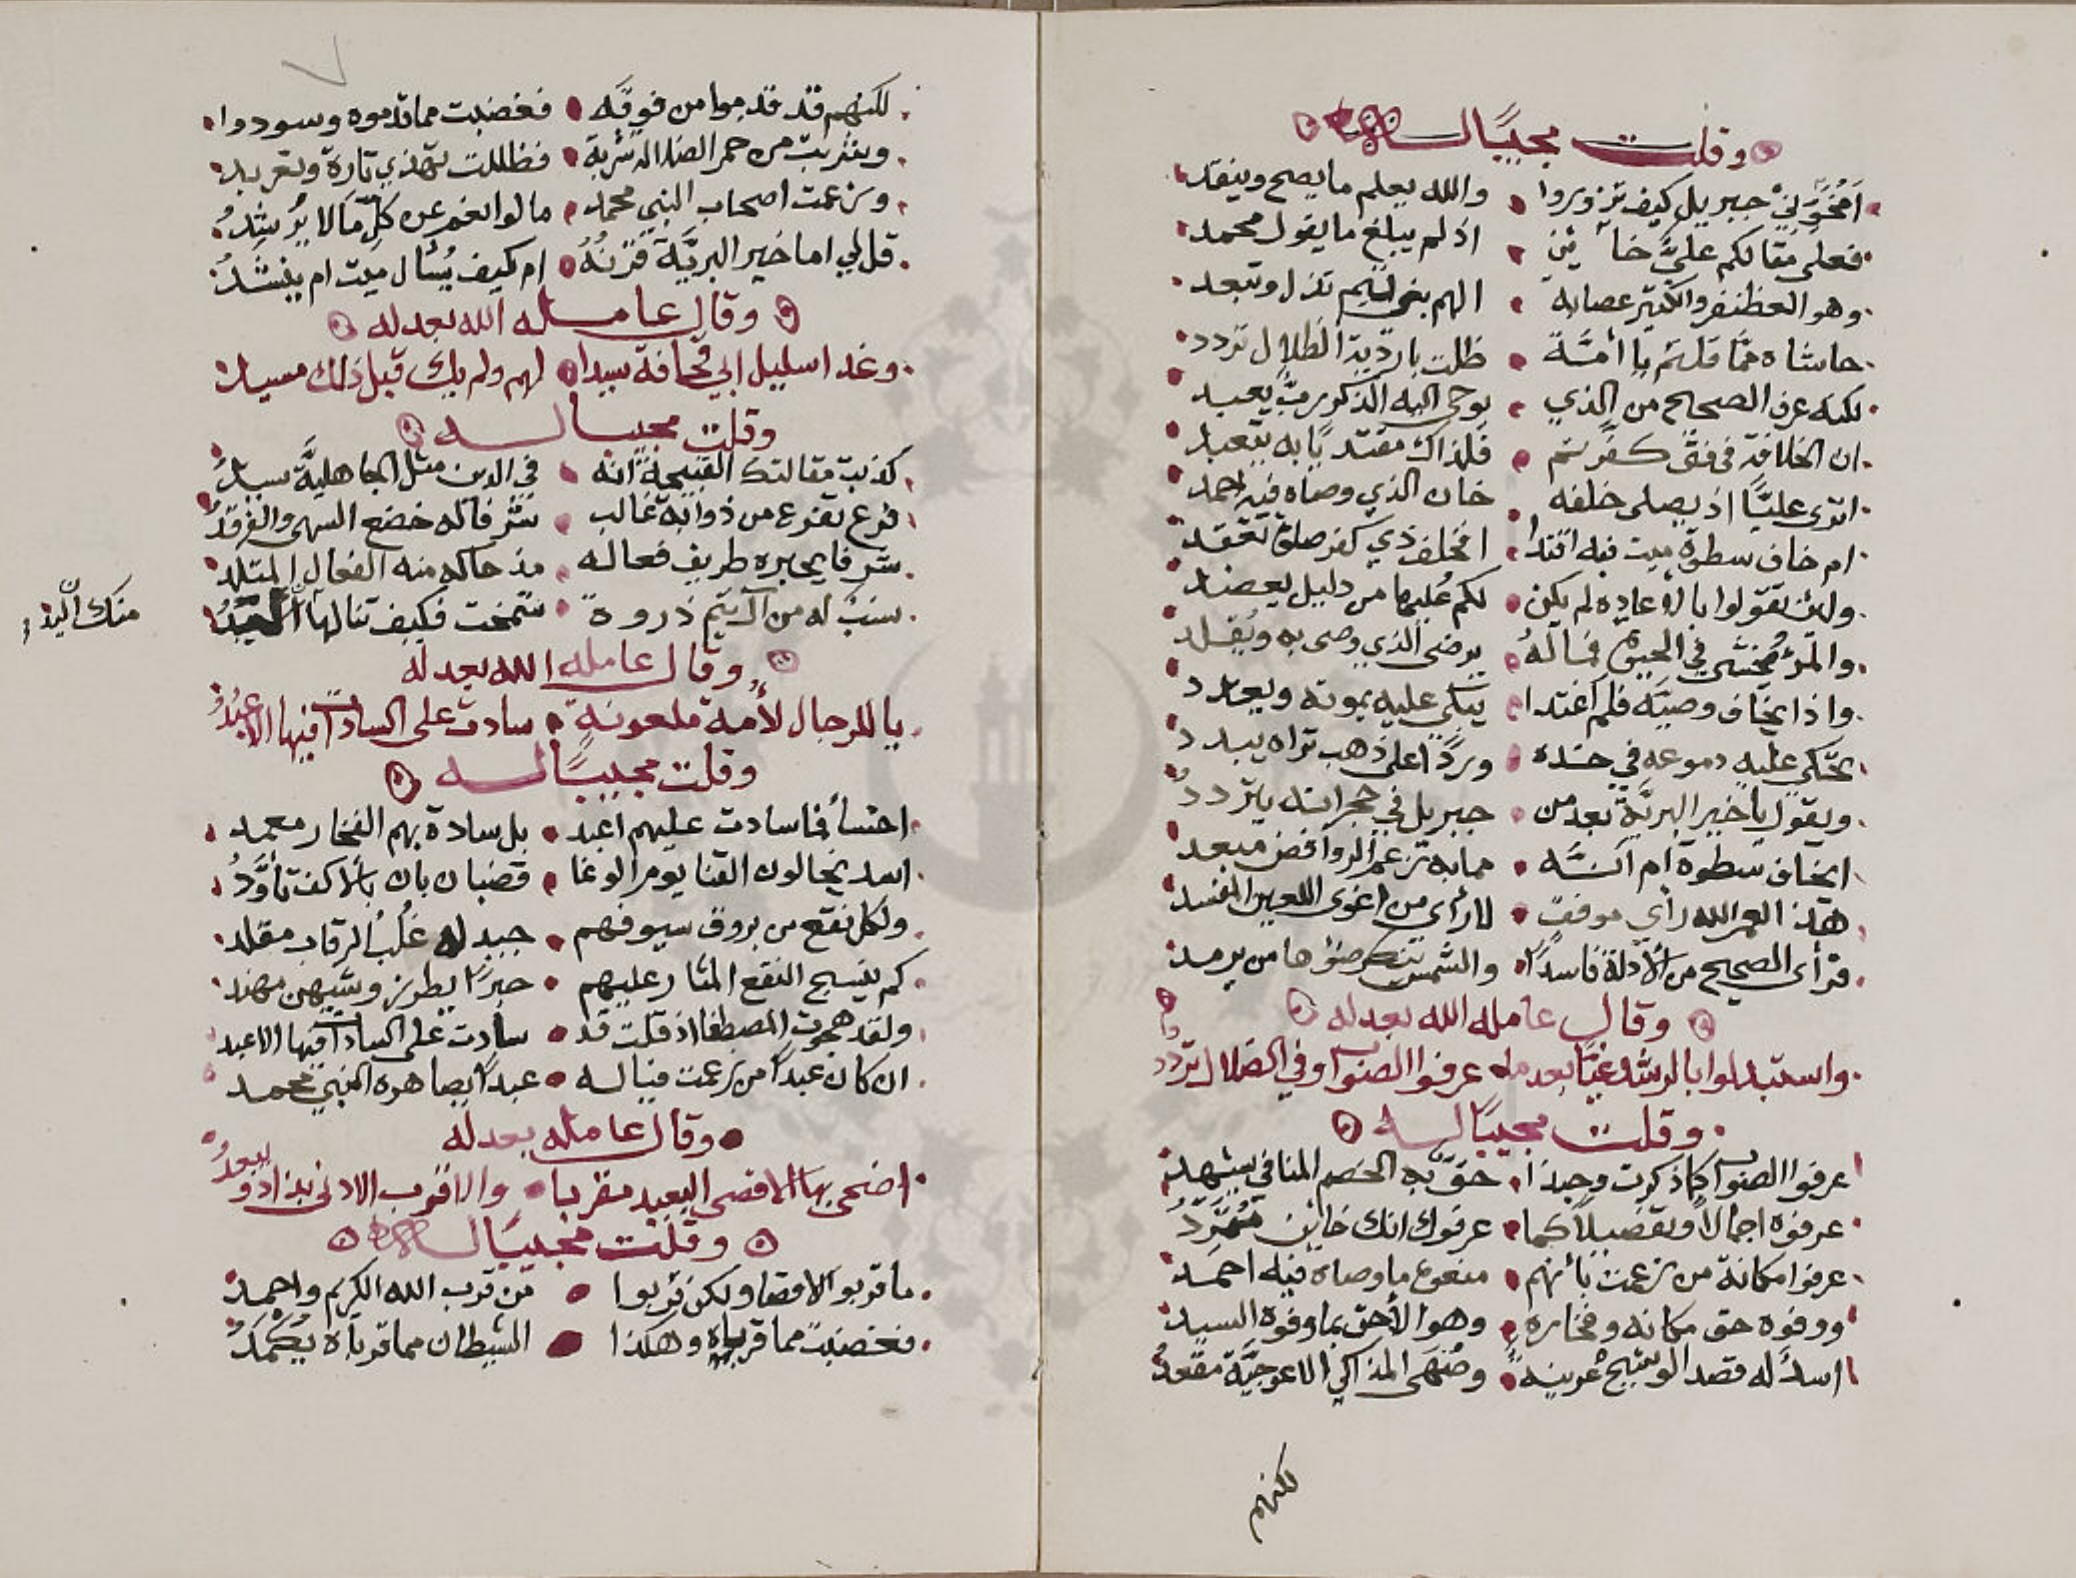 وقلت مجيبًا له
امخوني جبريل كيف تزوروا والله يعلم ما يصح وينقد
فعلى مقالكم عليَّ خائن اذ لم يبلغ ما يقول محمد
وهو الغظنفر والكثير عصابة
حاشاه ممَّا قلتم يا أمَّة ظلت باردية الظلال تردد
لكنه عرف الصحيح من الذي يوحي اليه الذكور ربٌّ يعبد
ان الخلافة فى فتى كفرتم فلذاك مقتديًا به يتعبد
اترى عليًّا اذ يصلى خلفه خان الذي وصاه فيه احمد
ام خاف سطوة ميت فبه اقتدا
ولئن تقولوا بالاعاده لم يكن لكم عليها من دليل يعضد
والمرء يخشى في الحيوة فما له يرضى الذي وصى به ويقلد
واذا يخاف وصيَّه فلم اغتدا يبكي عليه بموته ويعدد
تحكي عليه دموعه في خده وردًا على ذهب تراه يبدد
ويقول يا خير البريَّة بعد من جبريل في حجراته يتردد
ايخاف سطوة ام انَّه مما به تزعم الروافض مبعد
هذا لعمر الله رأي موفق لا رأى من اغوى اللعين المفسد
فترأى الصحيح من الأدلة فاسدًا والشمس تنكر ضوءها من يرمد
وقال عامله الله بعدله
واستبدلوا بالرشد غيًّا بعد ما عرفوا الصواب وفي الضلال تردَّدوا
وقلت مجيبًا له
عرفوا الصواب كما ذكرت وحبذا حقٌّ به الخصم المنافي يشهد
عرفوه اجمالاً وتفصيلاً كما عرفوك انك خائن متمرِّدُ
عرفوا مكانة من زعمت بأنهم منعوه ما وصاه فيه احمد
ووفوه حق مكانه وفخاره وهو الأحق بما وفوه السيد
اسدٌ له قصد الوشيج عرينه وصُهَى المذاكي الاعوجيَّة مقعدُ
لكنهم
لكنهم قد قدموا من فوقَه فغضبت مما قدموه وسودوا
وشربت من خمر الضلالة شربة فظللت تهذي تارة وتعربد
وزعمت اصحاب النبي محمد مالوا بغم عن كلِّ ما لا يُرشِدُ
قل لي اما خير البريَّة قرنُهُ ام كيف يُسأل ميت ام ينشدُ
وقال عامله الله بعدله
وغدا سليل ابي قحافة سيدا لهم ولم يك قبل ذلك سيد
وقلت مجيبا له
كذبت مقالتك القبيحة انه في الدين مثل الجاهليَّة سيدُ
فرع تفرع من ذوابة غالب شرفا له خضع السهى والفرقدُ
شرفا يحبره طريف فعاله مذ حاكه منه الفعال المتلد
نسبٌ له من آل تيم ذروة شمخت فكيف تنالها
منك اليد
وقال عامله الله بعدله
يا للرجال لأمة ملعونة سادت على السادات فيها الاعبدُ
وقلت مجيبًا له
اخسأ فما سادت عليهم اعبد بل سادة بهم الفخار معمد
اسد يخالون القنا يوم الوغا قضبان بان بالاكف تأوَّدُ
ولكل نقع من بروق سيوفهم جيد له غُلبُ الرقاب مقلد
كم ينسج النقع المثار عليهم حبرًا يطرزوشيهن مهند
ولقد هجوت المصطفا اذ قلت قد سادت على السادات فيها الاعبد
ان كان عبدًا من زعمت فيا له عبدًا يصاهره النبي محمد
وقال عامله بعدله
اضحى بها الاقصى البعيد مقربا والاقرب الادنى يذاد ويبعدُ
وقلت مجيبًا له
ما قربوا الاقصا ولكن قربوا من قرب الله الكريم واحمد
فغضبت مما قرباه وهكذا الشيطان مما قرباه يُكْمَدُ